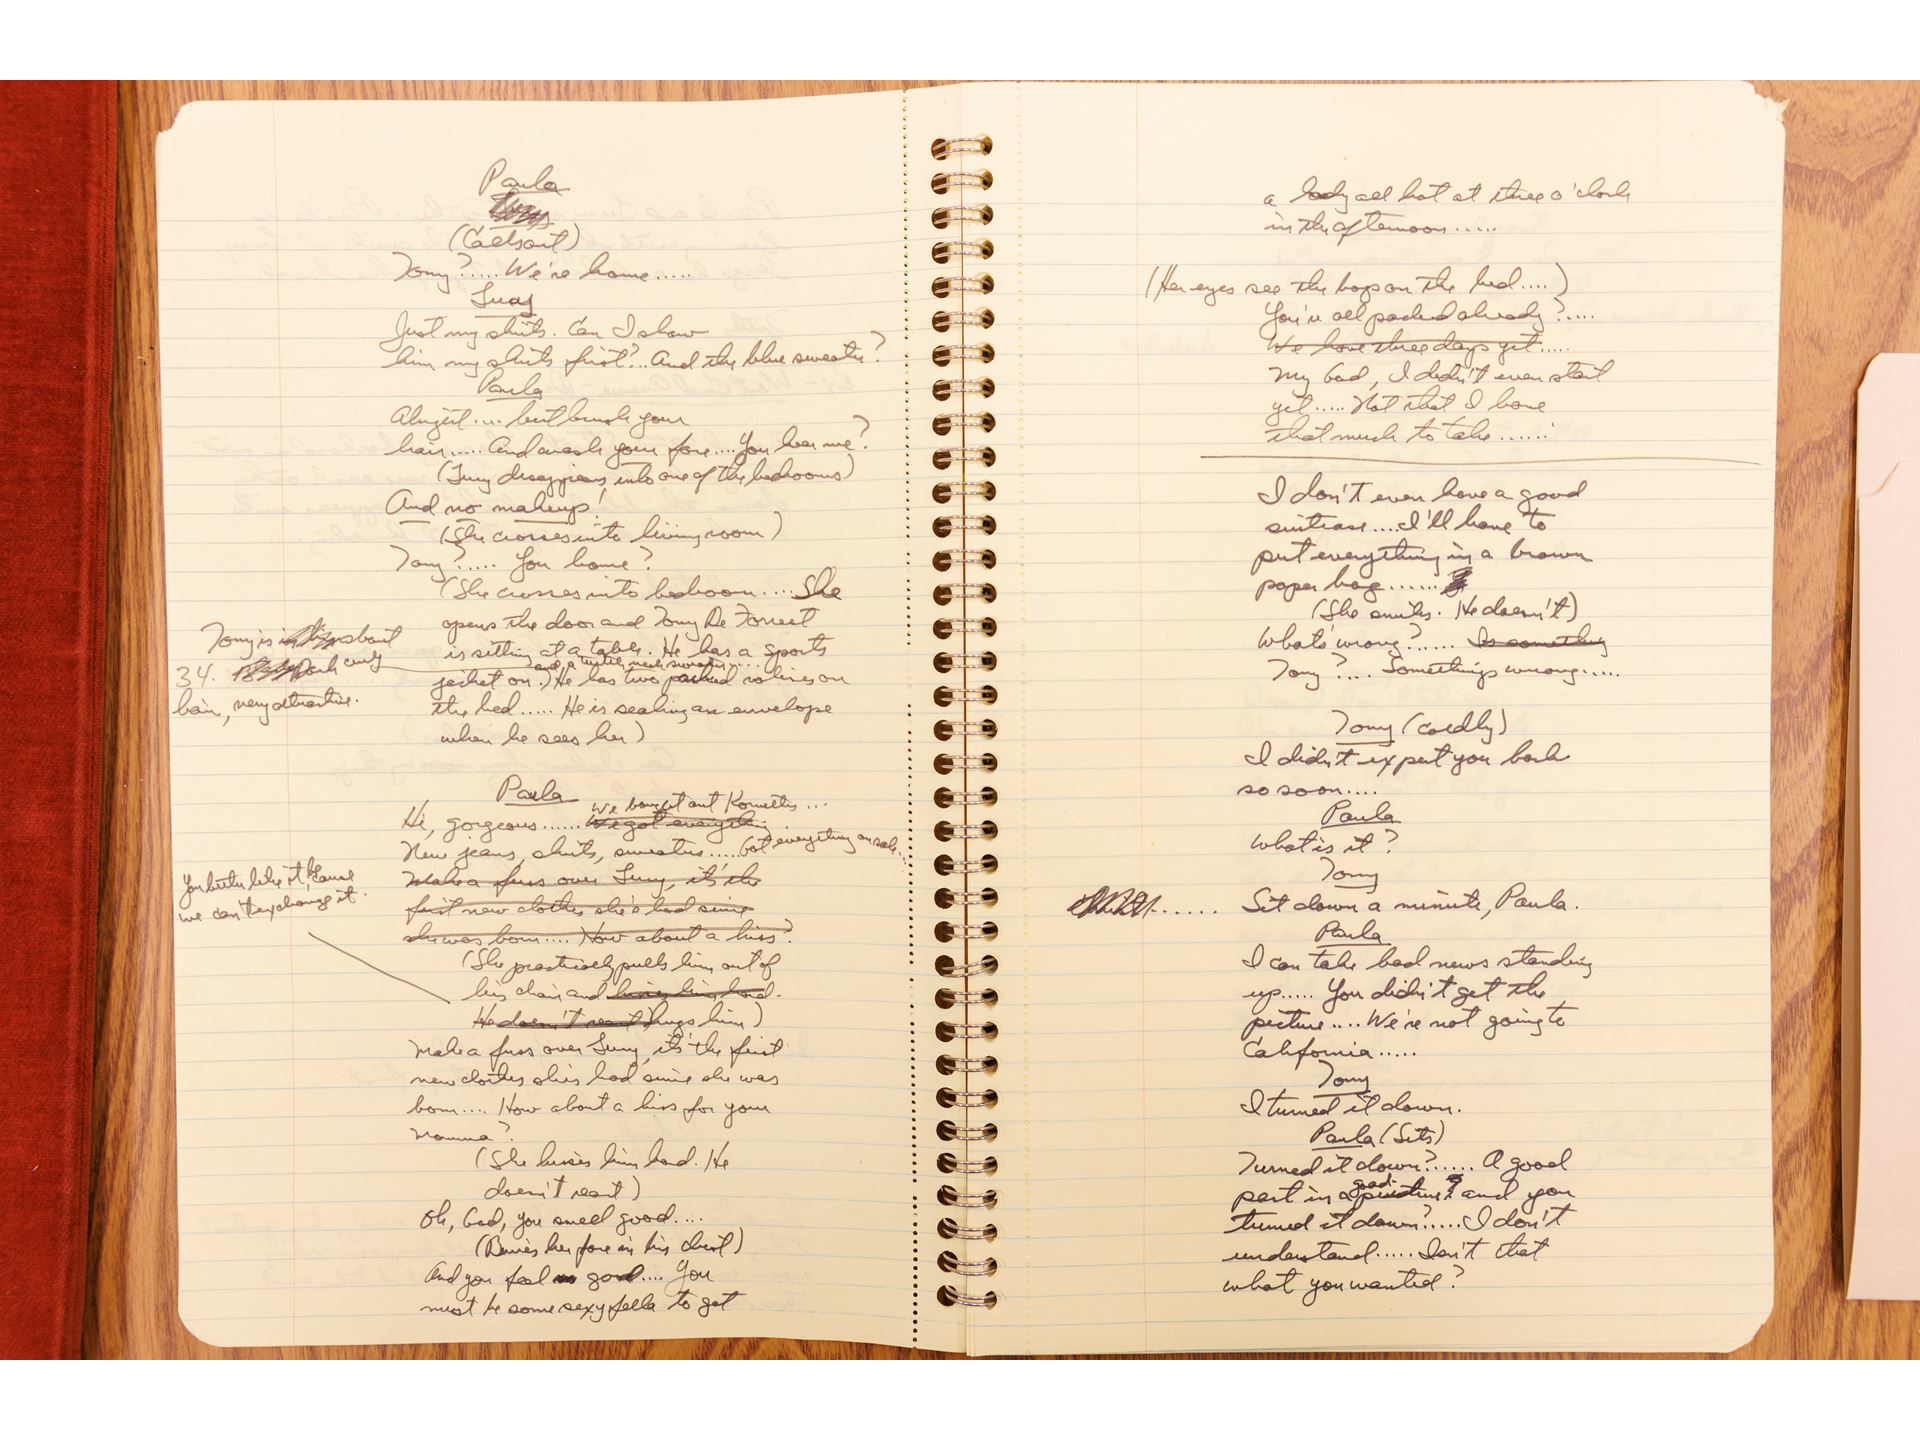 Paula
(Calls out)
Tony?..... We're home.....
Lucy
Just my shirts. Can I show
him my shirts first?... And the blue sweater?
Paula
Alright.... but brush your
hair..... And wash your face.... You hear me?
(Lucy disappears into one of the bedrooms)
And no makeup!
(She crosses into living room)
Tony?..... You home?
(She crosses into bedroom.... She
opens the door and Tony De Forrest
is sitting at a table. He has a sports
and a turtle neck sweater....
jacket on.) He has two packed valises on
the bed..... He is sealing an envelope
when he sees her)
Tony is about
34. Dark curly
hair, very attractive.
Paula
We bought out Korvettes...
He, gorgeous...... We got everything
New jeans, shirts, sweaters..... Got everything on sale...
Make a fuss over Lucy, it's the
first new clothes she's had since
she was born.... How about a kiss?
You better like it 'cause
we can't exchange it.
(She practically pulls him out of
his chair and kisses him hard.
He doesn't react) hugs him)
Make a fuss over Lucy, it's the first
new clothes she's had since she was
born.... How about a kiss for your
Momma?
(She kisses him hard. He
doesn't react)
Oh, God, you smell good....
(Buries her face in his chest)
And you feel good.... You
must be some sexy fella to get
a body all hot at three o'clock
in the afternoon.....
(Her eyes see the bags on the bed....)
You're all packed already?.....
We have three days yet.....
My God, I didn't even start
yet..... Not that I have
that much to take......
I don't even have a good
suitcase.... I'll have to
put everything in a brown
paper bag......
(She smiles. He doesn't)
What's wrong?...... Is something
Tony?.... Something's wrong.....
Tony (cordly)
I didn't expect you back
so soon....
Paula
What is it?
Tony
...... Sit down a minute, Paula.
Paula
I can take bad news standing
up..... You didn't get the
picture.... We're not going to
California.....
Tony
I turned it down.
Paula (Sits)
Turned it down?...... A good
good
part in a picture? and you
turned it down?..... I don't
understand..... Isn't that
what you wanted?